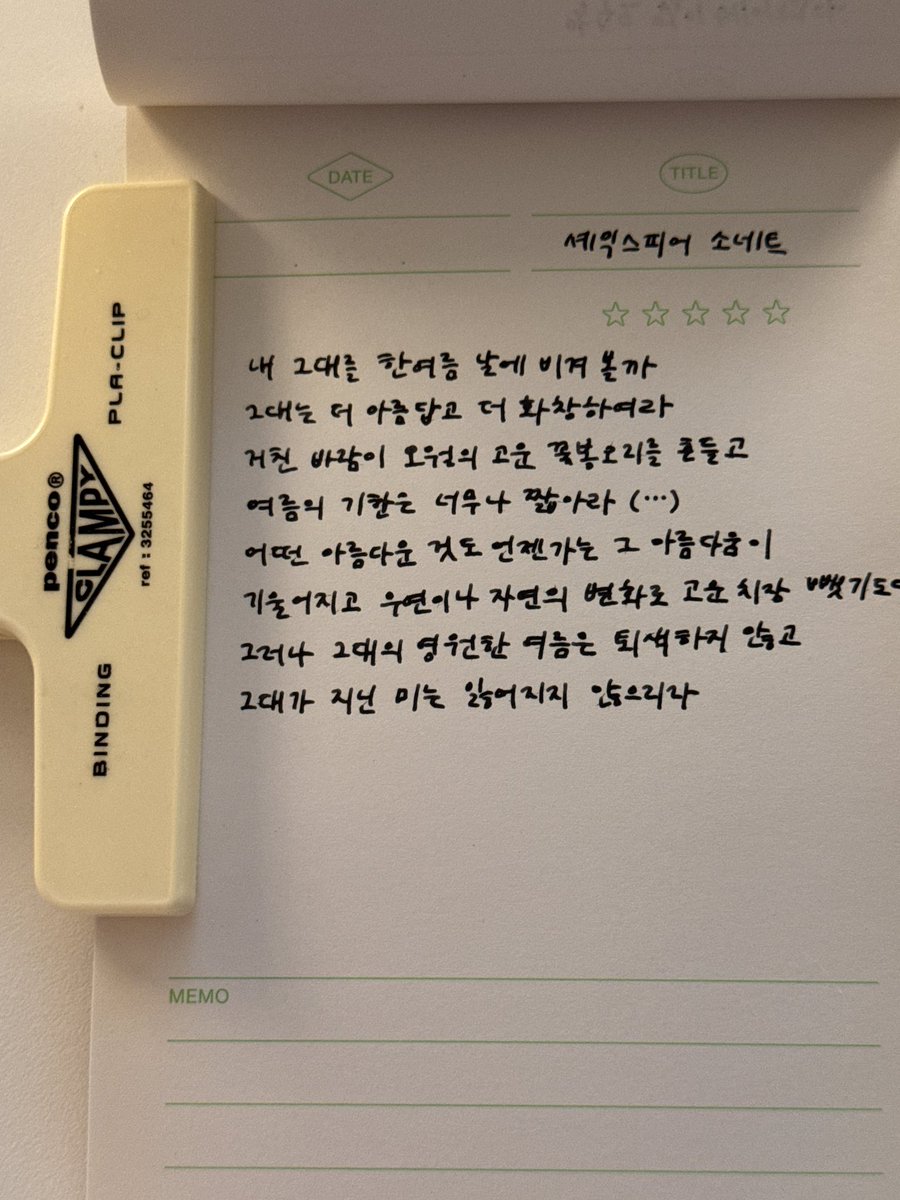 DATE
TITLE
셰익스피어 소네트
내 그대를 한여름 날에 비겨 볼까
그대는 더 아름답고 더 화창하여라
거친 바람이 오월의 고운 꽃봉오리를 흔들고
여름의 기한은 너무나 짧아라 (…)
어떤 아름다운 것도 언젠가는 그 아름다움이
기울어지고 우연이나 자연의 변화로 고운 치장 뺏기도
그러나 그대의 영원한 여름은 퇴색하지 않고
그대가 지닌 미는 잃어지지 않으리라
MEMO
PLA-CLIP
penco®
CLAMPY
ref : 3255464
BINDING